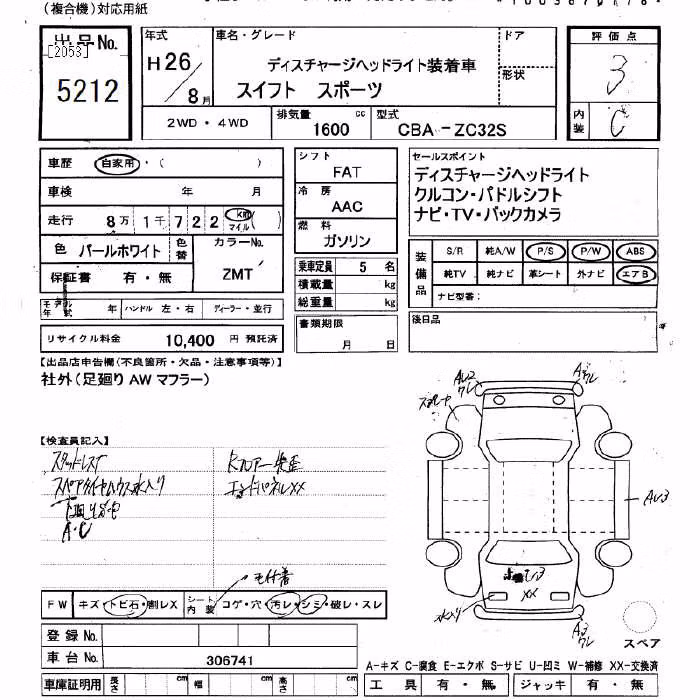 (複合機)対応用紙
出品No.
[2053]
5212
年式 車名・グレード ドア
H26/8月
ディスチャージヘッドライト装着車
スイフト スポーツ
形状
評価点
3
内装 C
2WD・4WD 排気量 cc 型式
1600 CBA-ZC32S
車歴 自家用・( )
車検 年 月
走行 8万1千722 km マイル ( )
色 パールホワイト 色替 カラーNo.
ZMT
保証書 有・無
モデル年式 年 ハンドル 左・右 ディーラー・並行
リサイクル料金 10,400 円 預託済
シフト
FAT
冷房
AAC
燃料
ガソリン
乗車定員 5 名
積載量 kg
総重量 kg
書類期限
月 日
セールスポイント
ディスチャージヘッドライト
クルコン・パドルシフト
ナビ・TV・バックカメラ
装備品
S/R 純A/W P/S P/W ABS
純TV 純ナビ 革シート 外ナビ エアB
ナビ型番:
後日品
【出品店申告欄(不良箇所・欠品・注意事項等)】
社外(足廻り AW マフラー)
【検査員記入】
スタッドレス
エンドパネルXX
A・C
AU2
ワレ
A
ワレ
AU3
U3
XX
水入り
A3
ワレ
スペア
FW キズ・トビ石・割レX シート内装 コゲ・穴・汚レ・シミ・破レ・スレ
登録No.
車台No. 306741
車庫証明用 長さ cm 幅 cm 高さ cm
A-キズ C-腐食 E-エクボ S-サビ U-凹ミ W-補修 XX-交換済
工具 有・無 ジャッキ 有・無